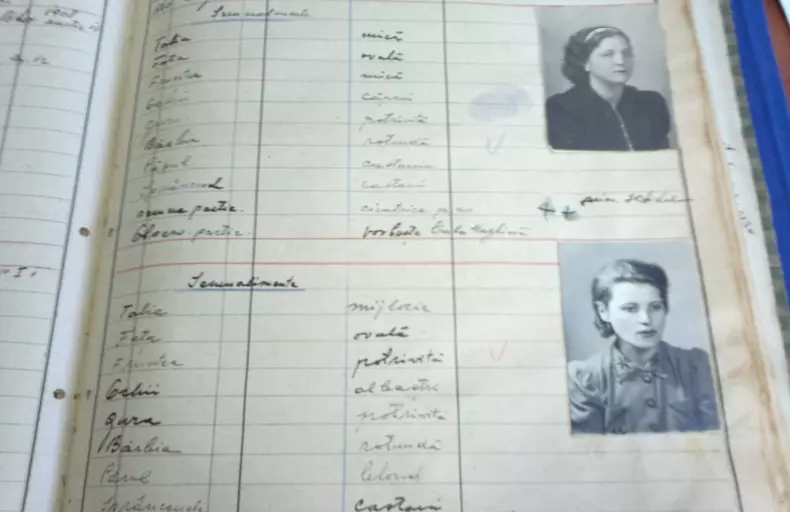 Semnalmente
Talia mică
Fața ovală
Fruntea mică
Ochii căprui
gura potrivită
Bărbia rotundă
Părul castaniu
Sprâncenele castanii
semne partic. cicatrice pe
Observ. partic. vorbește limba maghiară
Semnalmente
Talia mijlocie
Fața ovală
Fruntea potrivită
Ochii albaștri
gura potrivită
Bărbia rotundă
Părul blond
Sprâncenele castanii